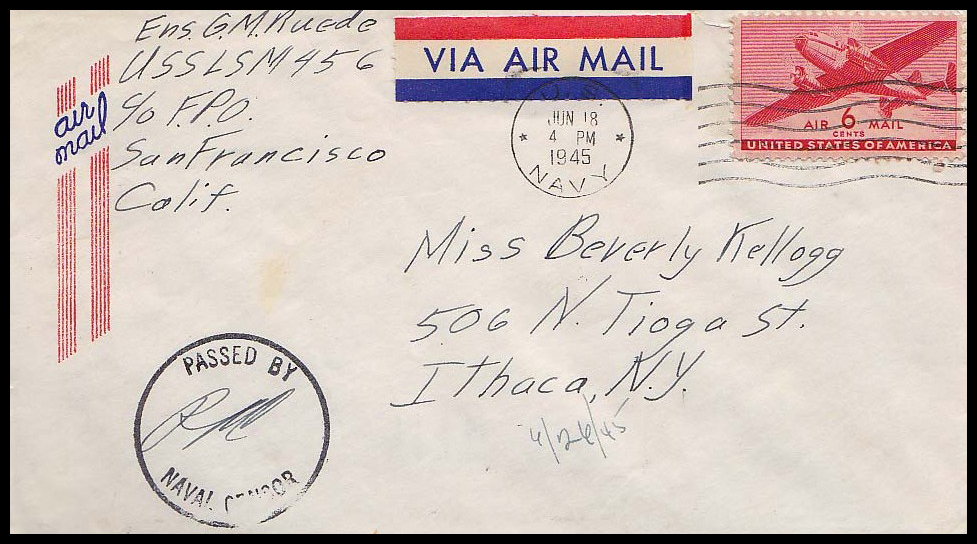 Ens. G.M. Ruede
USS LSM 456
c/o F.P.O.
San Francisco
Calif.
air
mail
VIA AIR MAIL
U.S.
JUN 18
4 PM
1945
NAVY
AIR 6 MAIL
CENTS
UNITED STATES OF AMERICA
Miss Beverly Kellogg
506 N. Tioga St.
Ithaca, N.Y.
PASSED BY
NAVAL CENSOR